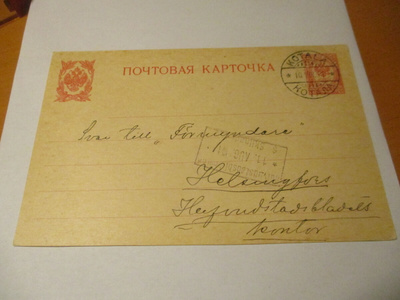 ПОЧТОВАЯ КАРТОЧКА
KOTALA
Svar till "Förmyndare"
Helsingfors
Hufvudstadsbladets
kontor